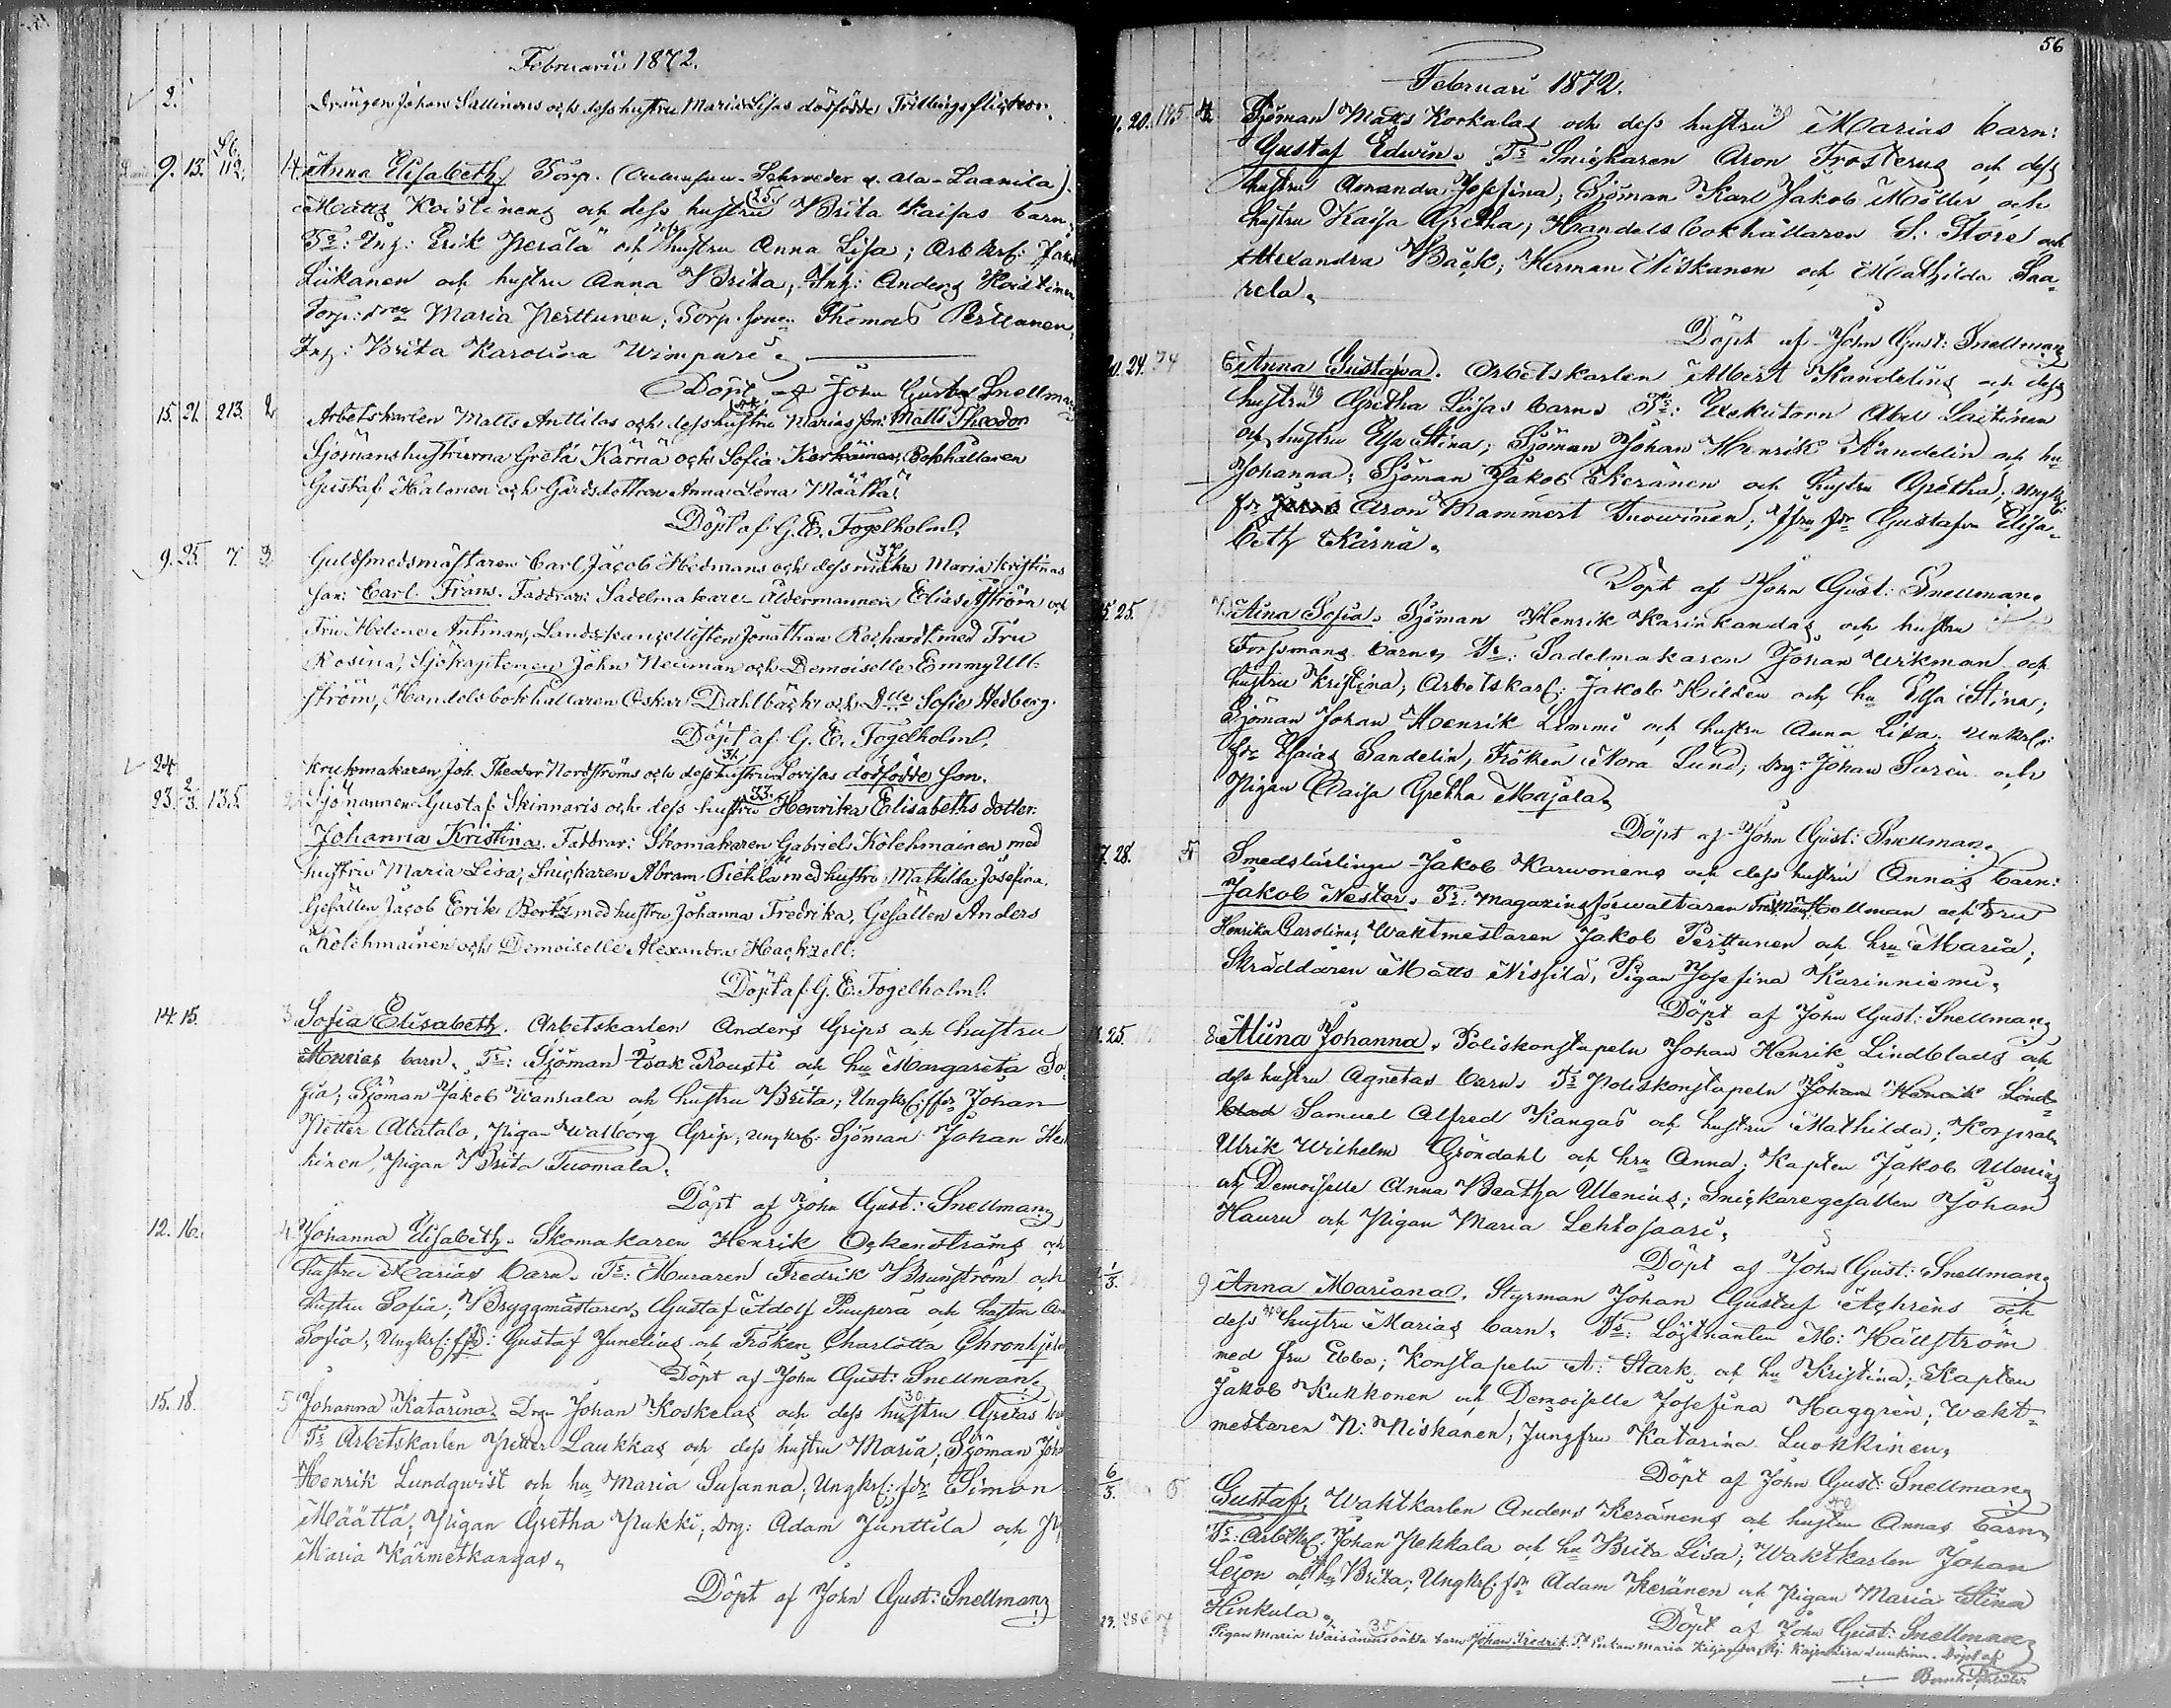 Februarii 1872.
2. Drängen Johan Sallinens och dess hustru Maria Lisas dödfödde Trillingsflickor.
9. 13. 112. Anna Elisabeth, Torp. Ala-Laanila).
Matts Koistinens och dess hustru 25 Brita Kaisas barn,
Fr: Inh: Erik Perälä och hustru Anna Lisa; Arb.karl:
Liikanen och hustru Anna Brita, Inh: Anders Hoidtinen
Torp: Maria Perttunen; Torp. son Thomas Perttunen,
Inh: Brita Karolina Wimpari.
Döpt af John Gust. Snellman
15. 21. 213. 2 Arbetskarlen Matts Anttilas och dess hustru Marias son: Matts Theodor
Sjömanshustrurna Greta Kärnä och Sofia Korhainen, Bokhållaren
Gustaf Halonen och Gårdsdottren Anna Lena Määttä.
Döpt af G. E. Fogelholm.
9. 25. 7. 3 Guldsmedsmästaren Carl Jacob Hedmans och dess maka Maria Kristinas
son: Carl Frans. Faddrar: Sadelmakare-Åldermannen Elias Åström och
Fru Helene Antman, Landskanzellisten Jonathan Rechardt med Fru
Rosina, Sjökaptenen John Neuman och Demoiselle Emmy Ull-
ström, Handelsbokhållaren Oskar Dahlbäck och Dlle Sofie Hedberg.
Döpt af G. E. Fogelholm.
24. Krukmakaren Joh. Theodor Nordströms och dess hustru Lovisas dödfödde son.
23. 2/3. 135. 2 Sjömannen Gustaf Skinnaris och dess hustru 33 Henrika Elisabeths dotter:
Johanna Kristina. Faddrar: Skomakaren Gabriel Kolehmainen med
hustru Maria Lisa, Snickaren Abram Pichla med hustru Mathilda Josefina,
Gesällen Jacob Erik Bertz med hustru Johanna Fredrika, Gesällen Anders
Kolehmainen och Demoiselle Alexandra Hackzell.
Döpt af G. E. Fogelholm.
14. 15. 3. Sofia Elisabeth. Arbetskarlen Anders Grips och hustru
Marias barn. Fr: Sjöman Isak Rousti och hu Margareta So-
fia; Sjöman Jakob Wanhala och hustru Brita; Ungkrl: fdr Johan
Petter Alatalo, Pigan Walborg Grip; Ungkrl: Sjöman Johan Hei
kinen, Pigan Brita Tuomala.
Döpt af John Gust: Snellman
12. 16. 4. Johanna Elisabeth. Skomakaren Henrik Öckenströms och
hustru Marias barn. Fr: Muraren Fredrik Brunström och
hustru Sofia; Bryggmästaren Gustaf Adolf Puuperä och hustru
Sofia, Ungkrl: Gustaf Junelius och Fröken Charlotta
Döpt af John Gust: Snellman.
15. 18. 5 Johanna Katarina. Drg. Johan Koskelas och dess hustru 30 Gretas
Fr Arbetskarlen Petter Laukkas och dess hustru Maria; Sjöman Joh
Henrik Lundqwist och hu Maria Susanna; Ungkrl: fdr Simon
Määttä; Pigan Gretha Pukki; Drg: Adam Junttila och
Maria Kärmetkangas.
Döpt af John Gust: Snellman
56
Februari 1872.
20. 195 4. Sjöman Matts Korkalas och dess hustru 30 Marias barn:
Gustaf Edwin. Fr Snickaren Aron Frosterus och dess
hustru Amanda Josefina; Sjöman Karl Jakob Möller och
hustru Kaisa Gretha; Handelsbokhållaren S. Store och
Alexandra Bäck; Herman Niskanen och Mathilda Saa-
rela.
Döpt af John Gust: Snellman
24. 74 6 Anna Gustava. Arbetskarlen Albert Kandelins och dess
hustru 40 Gretha Lisas barn. Fr: Exekutorn Abel Laitinen
och hustru Elsa Stina; Sjöman Johan Henrik Kandelin och hu
Johanna; Sjöman Jakob Keränen och hustru Gretha; Ungk:
fdr Aron Mammert Tuowinen; Jfru fdr Gustafva Elisa-
beth Kärnä.
Döpt af John Gust: Snellman.
25. 7. Aina Sofia. Sjöman Henrik Karinkandas och hustru
Forssmans barn. Fr: Sadelmakaren Johan Wikman och
hustru Kristina; Arbetskarl: Jakob Hilden och hu Elsa Stina;
Sjöman Johan Henrik Limmi och hustru Anna Lisa. Unkrl:
fdr Esaias Sandelin, Fröken Nora Lund; Drg: Johan Saren och
Pigan Caisa Gretha Majala.
Döpt af John Gust: Snellman.
28. 5 Smedslärlingen Jakob Karwonens och dess hustru Annas barn:
Jakob Nestor. Fr: Magazinsförwaltaren Hellman och Fru
Henrika Carolina; Waktmestaren Jakob Perttunen och hru Maria;
Skräddaren Matts Nissilä, Pigan Josefina Karinniemi.
Döpt af John Gust: Snellman
25. 8. Alina Johanna. Poliskonstapeln Johan Henrik Lindblads och
dess hustru Agnetas barn. Fr Poliskonstapeln Johan Henrik Lind-
blad Samuel Alfred Kangas och hustru Mathilda; Korpral
Ulrik Wilhelm Gröndahl och hru Anna; Kapten Jakob Ulenius
och Demoiselle Anna Beatha Ulenius; Snickaregesällen Johan
Hauru och Pigan Maria Lehtosaari.
Döpt af John Gust: Snellman
1/3. 9 Anna Mariana. Styrman Johan Gustaf Åchrens och
dess 40 hustru Marias barn. Fr: Löjtnanten M: Hällström
med fru Ebba; Konstapeln A: Stark och hu Kristina; Kapten
Jakob Kukkonen och Demoiselle Josefina Haggrén; Wakt-
mestaren N: Niskanen; Jungfru Katarina Luokkinen.
Döpt af John Gust: Snellman
6/3. 5 Gustaf; Waktkarlen Anders Keränens och hustru Annas barn.
Fr: Arb.kl: Johan Pekkala och hu Brita Lisa; Waktkarlen Johan
Leijon och hu Brita; Ungkrl: fdr Adam Keränen och Pigan Maria Stina
Hinkula.
Döpt af John Gust: Snellman
23. 286 7 Pigan Maria Wäisänens oäkta barn Johan Fredrik. Fr Enkan Maria Kiljander, Pig. Kajsa Lisa Luukinen. Döpt af